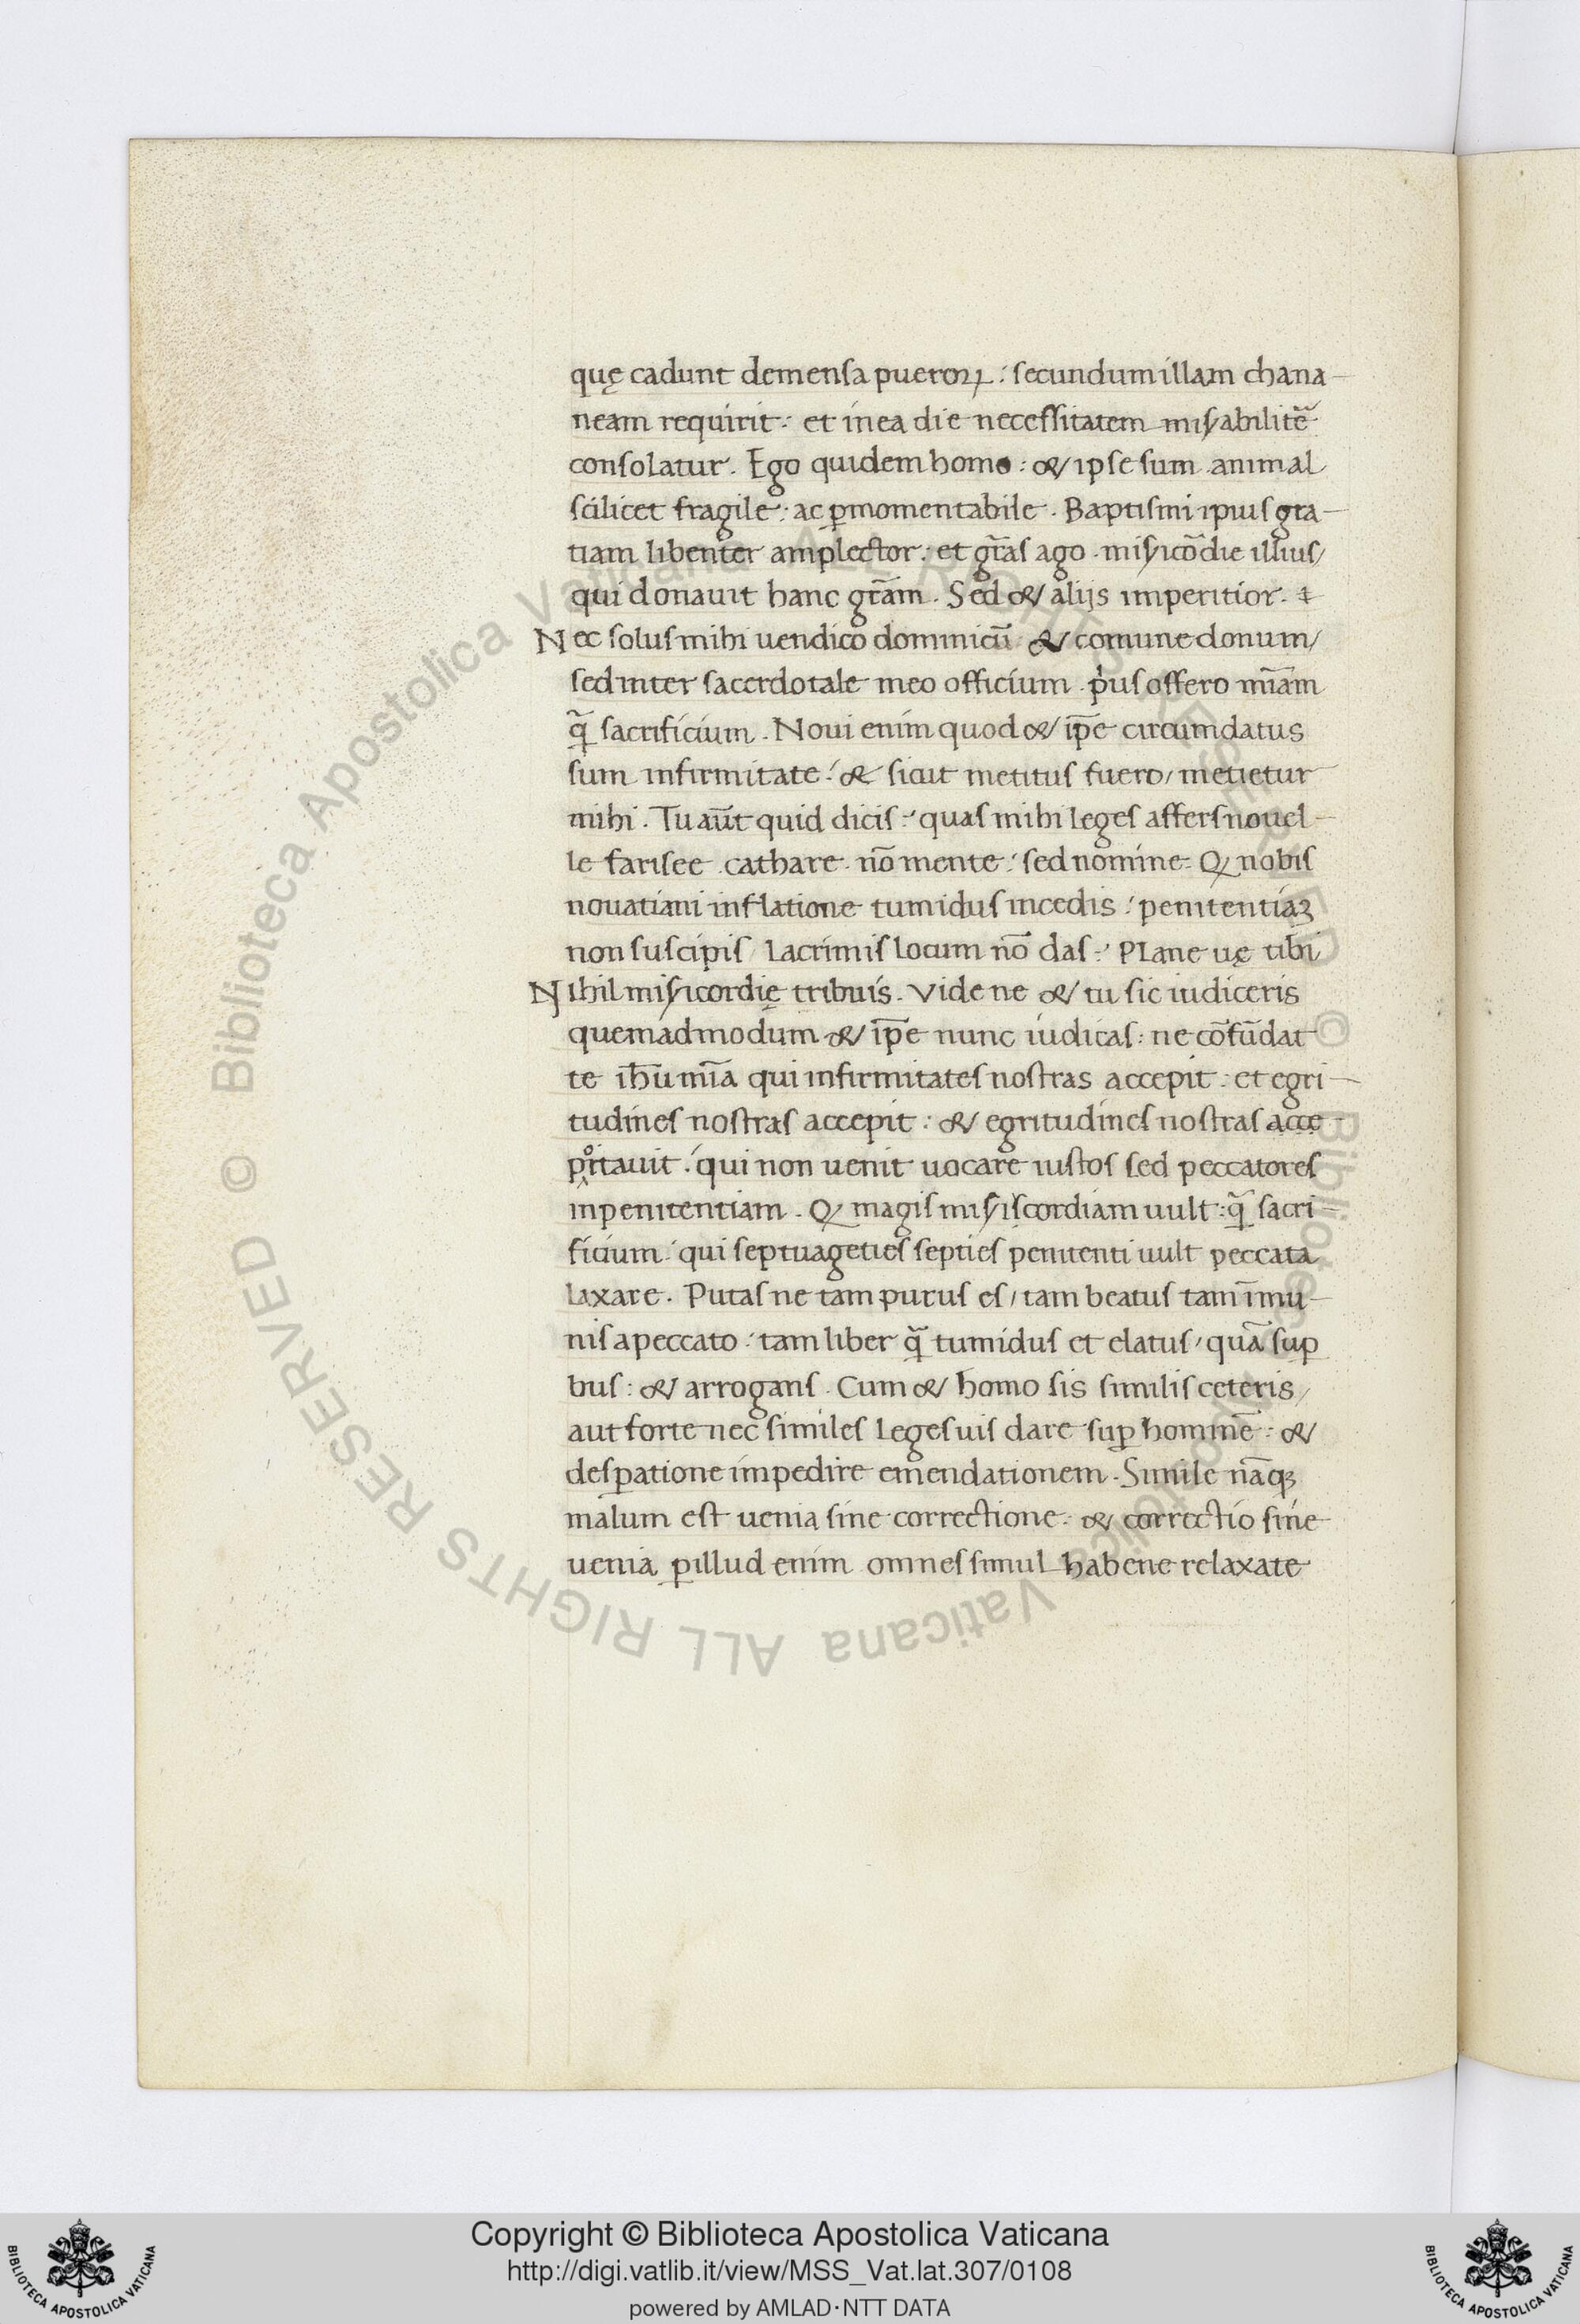 quę cadunt demensa pueroꝝ: secundum illam chana-
neam requirit: et in ea die necessitatem misabilitẽ
consolatur. Ego quidem homo: & ipse sum animal
scilicet fragile: ac ꝑmomentabile. Baptismi ipius gra-
tiam libenter amplector: et gr̃as ago misicõdie illius/
qui donauit hanc gr̃am. Sed & alijs imperitior.
Nec solus mihi uendico dominicũ & comune donum/
sed inter sacerdotale meo officium p̾us offero mĩam
q̃ sacrificium. Noui enim quod & ip̃e circumdatus
sum infirmitate: & sicut metitus fuero/ metietur
mihi. Tu aũt quid dicis: quas mihi leges affers nouel-
le farisee cathare nõ mente: sed nomine. Q nobis
nouatiani inflatione tumidus incedis: penitentiaꝫ
non suscipis/ Lacrimis locum nõ das: Plane uę tibi
Nihil misicordię tribuis. Vide ne & tu sic iudiceris
quemadmodum & ip̃e nunc iudicas: ne cõfũdat
te ih̃u mĩa qui infirmitates nostras accepit: et egri-
tudines nostras accepit: & egritudines nostras acce-
portauit: qui non uenit uocare iustos sed peccatores
inpenitentiam. Q magis misiscordiam uult: q̃ sacri-
ficium: qui septuageties septies penitenti uult peccata
laxare. Putas ne tam purus es/ tam beatus tam ĩmu-
nis apeccato: tam liber q̃ tumidus et elatus/ quã suꝑ
bus: & arrogans. Cum & homo sis similis ceteris/
aut forte nec similes Leges uis dare suꝑ hominẽ: &
desꝑatione impedire emendationem. Simile nãqꝫ
malum est uenia sine correctione: & correctio sine
uenia ꝑ illud enim omnes simul habene relaxate
Copyright © Biblioteca Apostolica Vaticana
http://digi.vatlib.it/view/MSS_Vat.lat.307/0108
powered by AMLAD·NTT DATA
BIBLIOTECA APOSTOLICA VATICANA
BIBLIOTECA APOSTOLICA VATICANA
© Biblioteca Apostolica Vaticana ALL RIGHTS RESERVED © Biblioteca Apostolica Vaticana ALL RIGHTS RESERVED